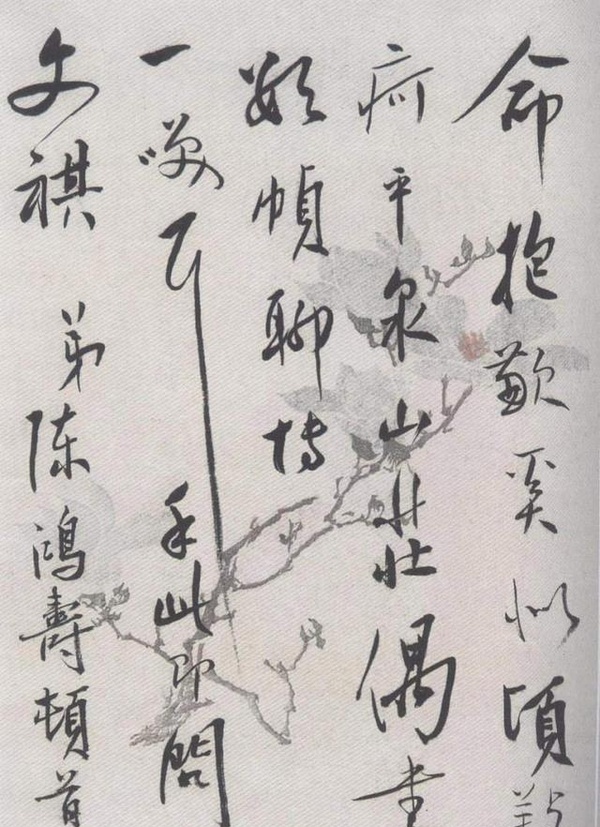 命抱歉奚似頃
疴平泉山莊偶書
數幀聊博
一噱耳 手此即問
文祺 弟陳鴻壽頓首